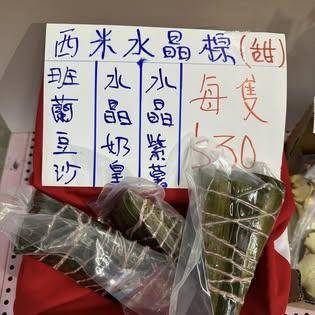 西米水晶粽(甜)
班蘭豆沙
水晶奶皇
水晶紫薯
每隻
$30